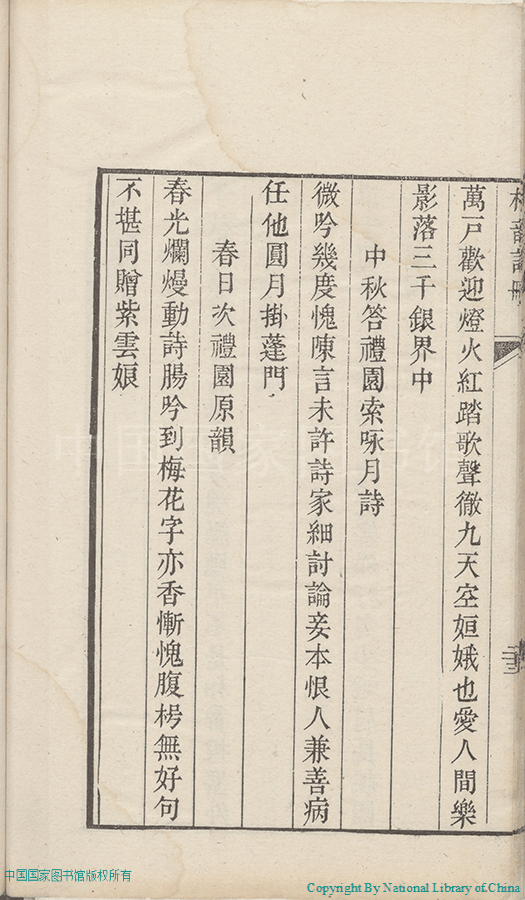 萬戸歡迎燈火紅踏歌聲徹九天空姮娥也愛人間樂
影落三千銀界中
中秋答禮園索咏月詩
微吟幾度愧陳言未許詩家細討論妾本恨人兼善病
任他圓月掛蓬門
春日次禮園原韻
春光爛熳動詩腸吟到梅花字亦香慚愧腹枵無好句
不堪同贈紫雲娘
中国国家图书馆版权所有
Copyright By National Library of.China